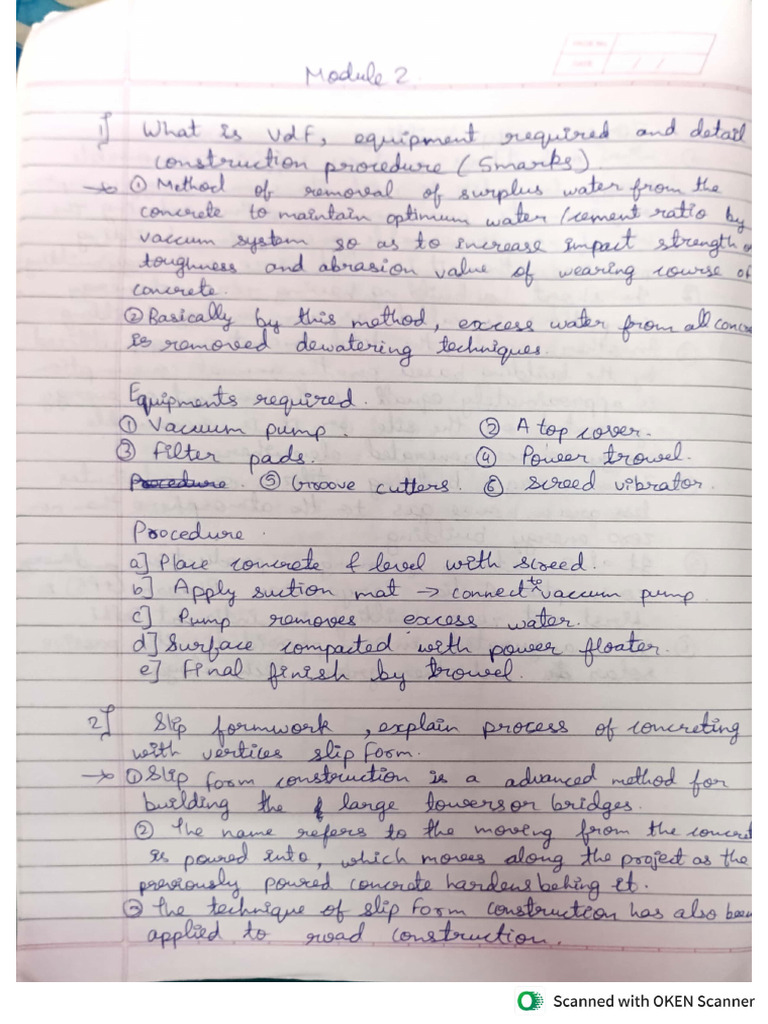 Module 2.
1] What is vdf, equipment required and detail
construction procedure (5marks)
→ ① Method of removal of surplus water from the
concrete to maintain optimum water/cement ratio by
vaccum system so as to increase impact strength
toughness and abrasion value of wearing course of
concrete.
② Basically by this method, excess water from all concre
is removed dewatering techniques.
Equipments required.
① Vacuum pump. ② A top cover.
③ Filter pads. ④ Power trowel.
Procedure. ⑤ Groove cutters. ⑥ Screed vibrator.
Procedure.
a] Place concrete & level with screed.
b] Apply suction mat → connect to vaccum pump.
c] Pump removes excess water.
d] Surface compacted with power floater.
e] Final finish by trowel.
2] Slip formwork, explain process of concreting
with vertices slip form.
→ ① Slip form construction is a advanced method for
building the large towers or bridges.
② The name refers to the moving from the concret
is poured into, which moves along the project as the
previously poured concrete hardens behing it.
③ The technique of slip form construction has also been
applied to road construction.
Scanned with OKEN Scanner